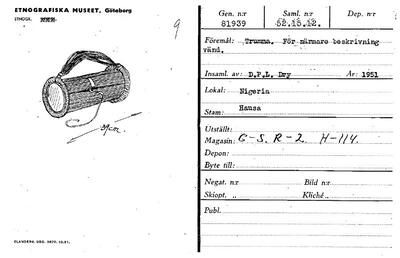 ETNOGRAFISKA MUSEET, Göteborg
ETNOGR.
9
ELANDERS. GBG.
Gen. n:r
81939
Saml. n:r
52.13.12.
Dep. n:r
Föremål: Trumma. För närmare beskrivning
vänd.
Insaml. av: D.P.L. Dry År: 1951
Lokal: Nigeria
Stam: Hausa
Utställt:
Magasin: G-S. R-2 H-114.
Depon:
Byte till:
Negat. n:r Bild n:r
Skiopt. „ Kliché „
Publ.